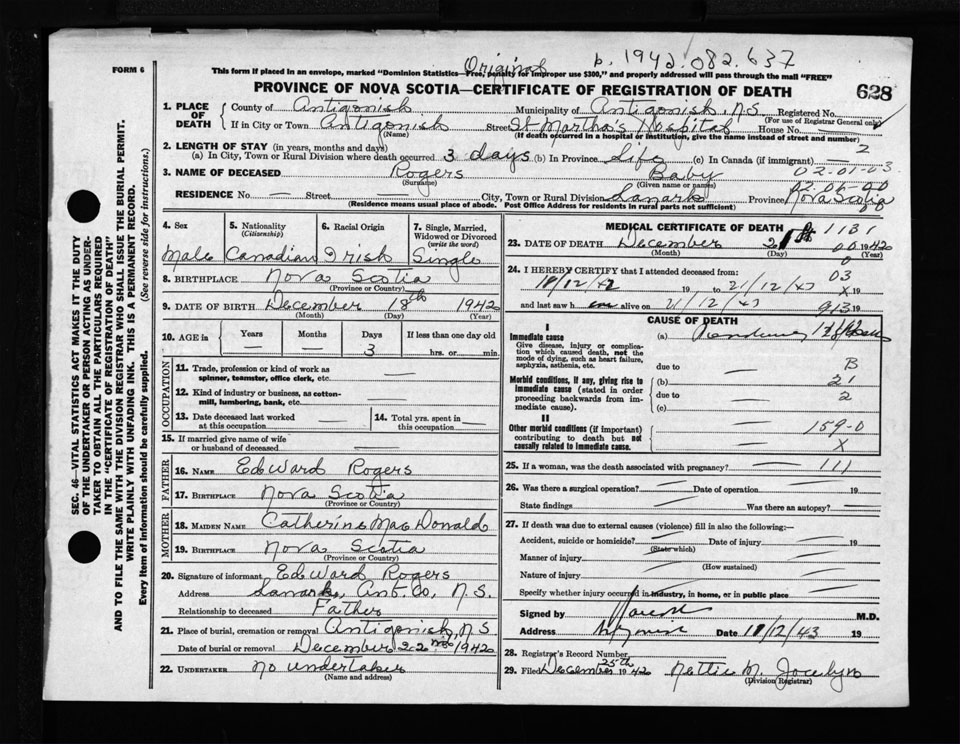 b. 1942.082.637
Original
FORM 6
This form if placed in an envelope, marked "Dominion Statistics—Free, penalty for improper use $300," and properly addressed will pass through the mail "FREE"
PROVINCE OF NOVA SCOTIA—CERTIFICATE OF REGISTRATION OF DEATH
628
1. PLACE OF DEATH County of Antigonish Municipality of Antigonish, N.S. Registered No.
(For use of Registrar General only)
If in City or Town Antigonish Street St Martha's Hospital House No. —
(Name) (If death occurred in a hospital or institution, give the name instead of street and number)
2
2. LENGTH OF STAY (in years, months and days)
(a) In City, Town or Rural Division where death occurred 3 days (b) In Province Life (c) In Canada (if immigrant) —
02-01-03
3. NAME OF DECEASED Rogers Baby
(Surname) (Given name or names)
02-06-00
RESIDENCE No. — Street City, Town or Rural Division Lanark Province Nova Scotia
(Residence means usual place of abode. Post Office Address for residents in rural parts not sufficient)
SEC. 46—VITAL STATISTICS ACT MAKES IT THE DUTY
OF THE UNDERTAKER OR PERSON ACTING AS UNDER-
TAKER TO OBTAIN ALL THE PARTICULARS REQUIRED
IN THE "CERTIFICATE OF REGISTRATION OF DEATH"
AND TO FILE THE SAME WITH THE DIVISION REGISTRAR WHO SHALL ISSUE THE BURIAL PERMIT.
WRITE PLAINLY WITH UNFADING INK. THIS IS A PERMANENT RECORD.
Every item of information should be carefully supplied. (See reverse side for instructions.)
4. Sex 5. Nationality (Citizenship) 6. Racial Origin 7. Single, Married, Widowed or Divorced (write the word)
Male Canadian Irish Single
8. BIRTHPLACE Nova Scotia
(Province or Country)
9. DATE OF BIRTH December 18th 1942
(Month) (Day) (Year)
10. AGE in Years Months Days If less than one day old
— — 3 hrs. or min.
OCCUPATION
11. Trade, profession or kind of work as spinner, teamster, office clerk, etc. —
12. Kind of industry or business, as cotton-mill, lumbering, bank, etc. —
13. Date deceased last worked at this occupation — 14. Total yrs. spent in this occupation —
15. If married give name of wife or husband of deceased —
FATHER
16. NAME Edward Rogers
17. BIRTHPLACE Nova Scotia
(Province or Country)
MOTHER
18. MAIDEN NAME Catherine MacDonald
19. BIRTHPLACE Nova Scotia
(Province or Country)
20. Signature of informant Edward Rogers
Address Lanark, Ant. Co, N.S.
Relationship to deceased Father
21. Place of burial, cremation or removal Antigonish, N S
Date of burial or removal December 22nd 1942
22. UNDERTAKER No undertaker
(Name and address)
MEDICAL CERTIFICATE OF DEATH
1131
23. DATE OF DEATH December 21st 1942
(Month) (Day) (Year)
24. I HEREBY CERTIFY that I attended deceased from:
03
18/12/42 19 to 21/12/43 X 19
and last saw h alive on 21/12/43 913 19
CAUSE OF DEATH
I
Immediate cause
Give disease, injury or complication which caused death, not the mode of dying, such as heart failure, asphyxia, asthenia, etc.
(a)
due to — B
Morbid conditions, if any, giving rise to immediate cause (stated in order proceeding backwards from immediate cause).
(b) 21
due to — 2
(c)
II
Other morbid conditions (if important) contributing to death but not causally related to immediate cause.
— 159-0
— X
25. If a woman, was the death associated with pregnancy? — 111
26. Was there a surgical operation? — Date of operation — 19
State findings — Was there an autopsy? —
27. If death was due to external causes (violence) fill in also the following:—
Accident, suicide or homicide? — Date of injury — 19
(State which)
Manner of injury —
(How sustained)
Nature of injury —
Specify whether injury occurred in industry, in home, or in public place
Signed by M.D.
Address Date 11/2/43 19
28. Registrar's Record Number
29. Filed December 25th 1942 Nettie M. Jocelyn
(Division Registrar)